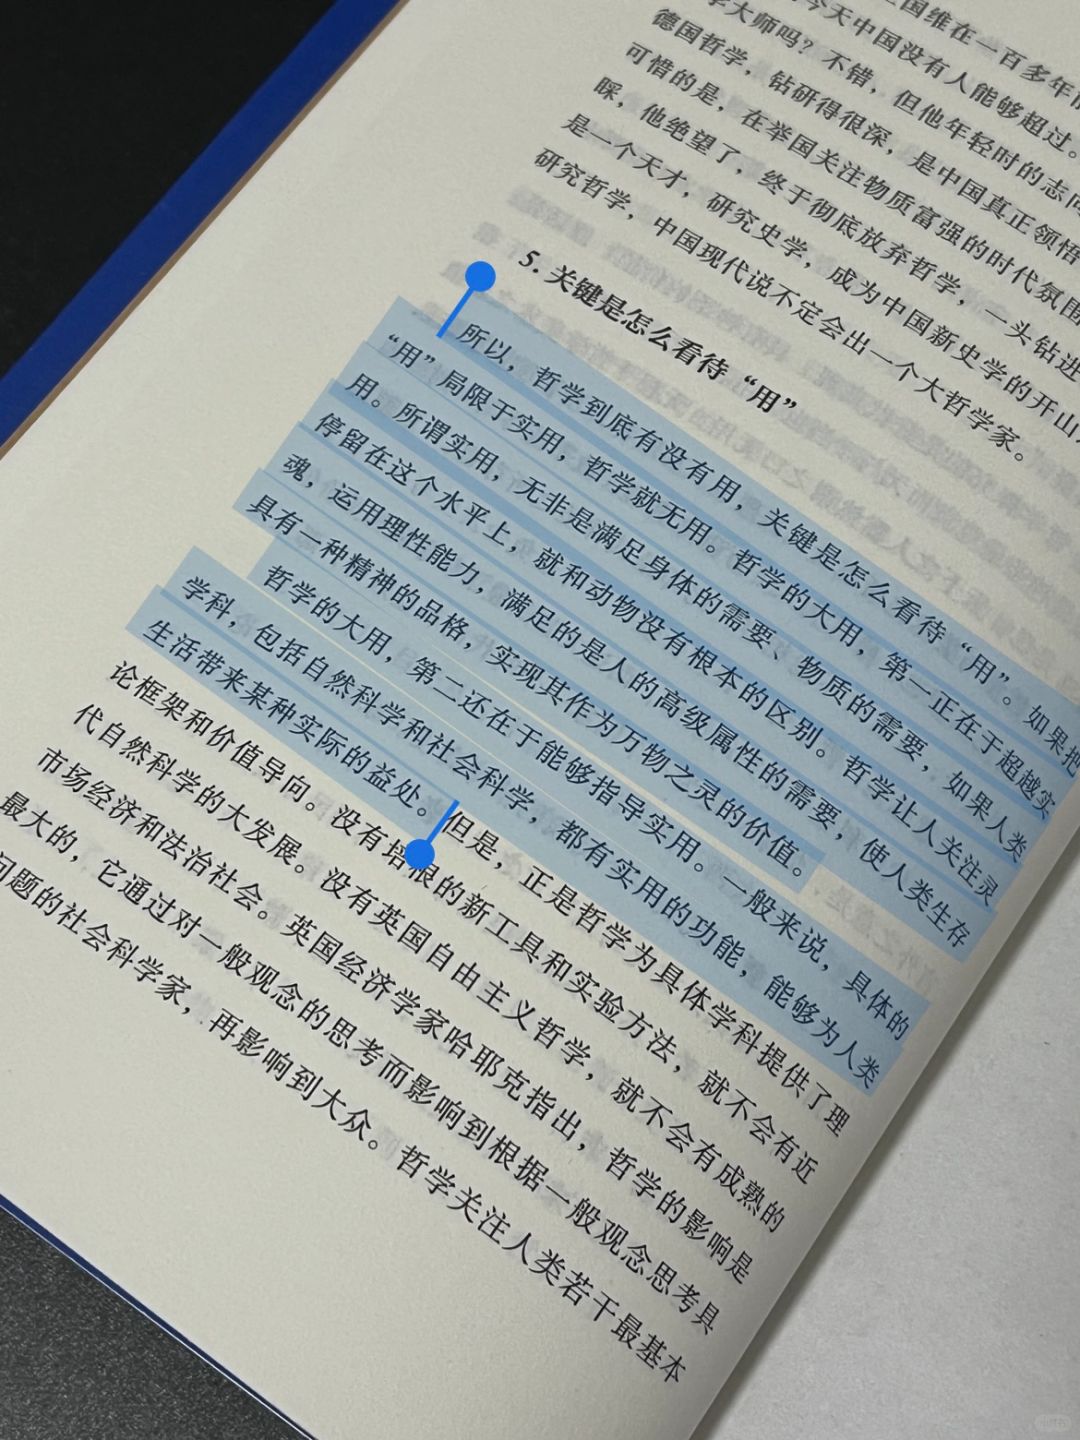 国维在一百多年前
今天中国没有人能够超过。
学大师吗？不错，但他年轻时的志向
德国哲学，钻研得很深，是中国真正领悟
可惜的是，在举国关注物质富强的时代氛围
睬，他绝望了，终于彻底放弃哲学，一头钻进
是一个天才，研究史学，成为中国新史学的开山
研究哲学，中国现代说不定会出一个大哲学家。
5. 关键是怎么看待“用”
所以，哲学到底有没有用，关键是怎么看待“用”。如果把
“用”局限于实用，哲学就无用。哲学的大用，第一正在于超越实
用。所谓实用，无非是满足身体的需要、物质的需要，如果人类
停留在这个水平上，就和动物没有根本的区别。哲学让人关注灵
魂，运用理性能力，满足的是人的高级属性的需要，使人类生存
具有一种精神的品格，实现其作为万物之灵的价值。
哲学的大用，第二还在于能够指导实用。一般来说，具体的
学科，包括自然科学和社会科学，都有实用的功能，能够为人类
生活带来某种实际的益处。但是，正是哲学为具体学科提供了理
论框架和价值导向。没有培根的新工具和实验方法，就不会有近
代自然科学的大发展。没有英国自由主义哲学，就不会有成熟的
市场经济和法治社会。英国经济学家哈耶克指出，哲学的影响是
最大的，它通过对一般观念的思考而影响到根据一般观念思考具
问题的社会科学家，再影响到大众。哲学关注人类若干最基本